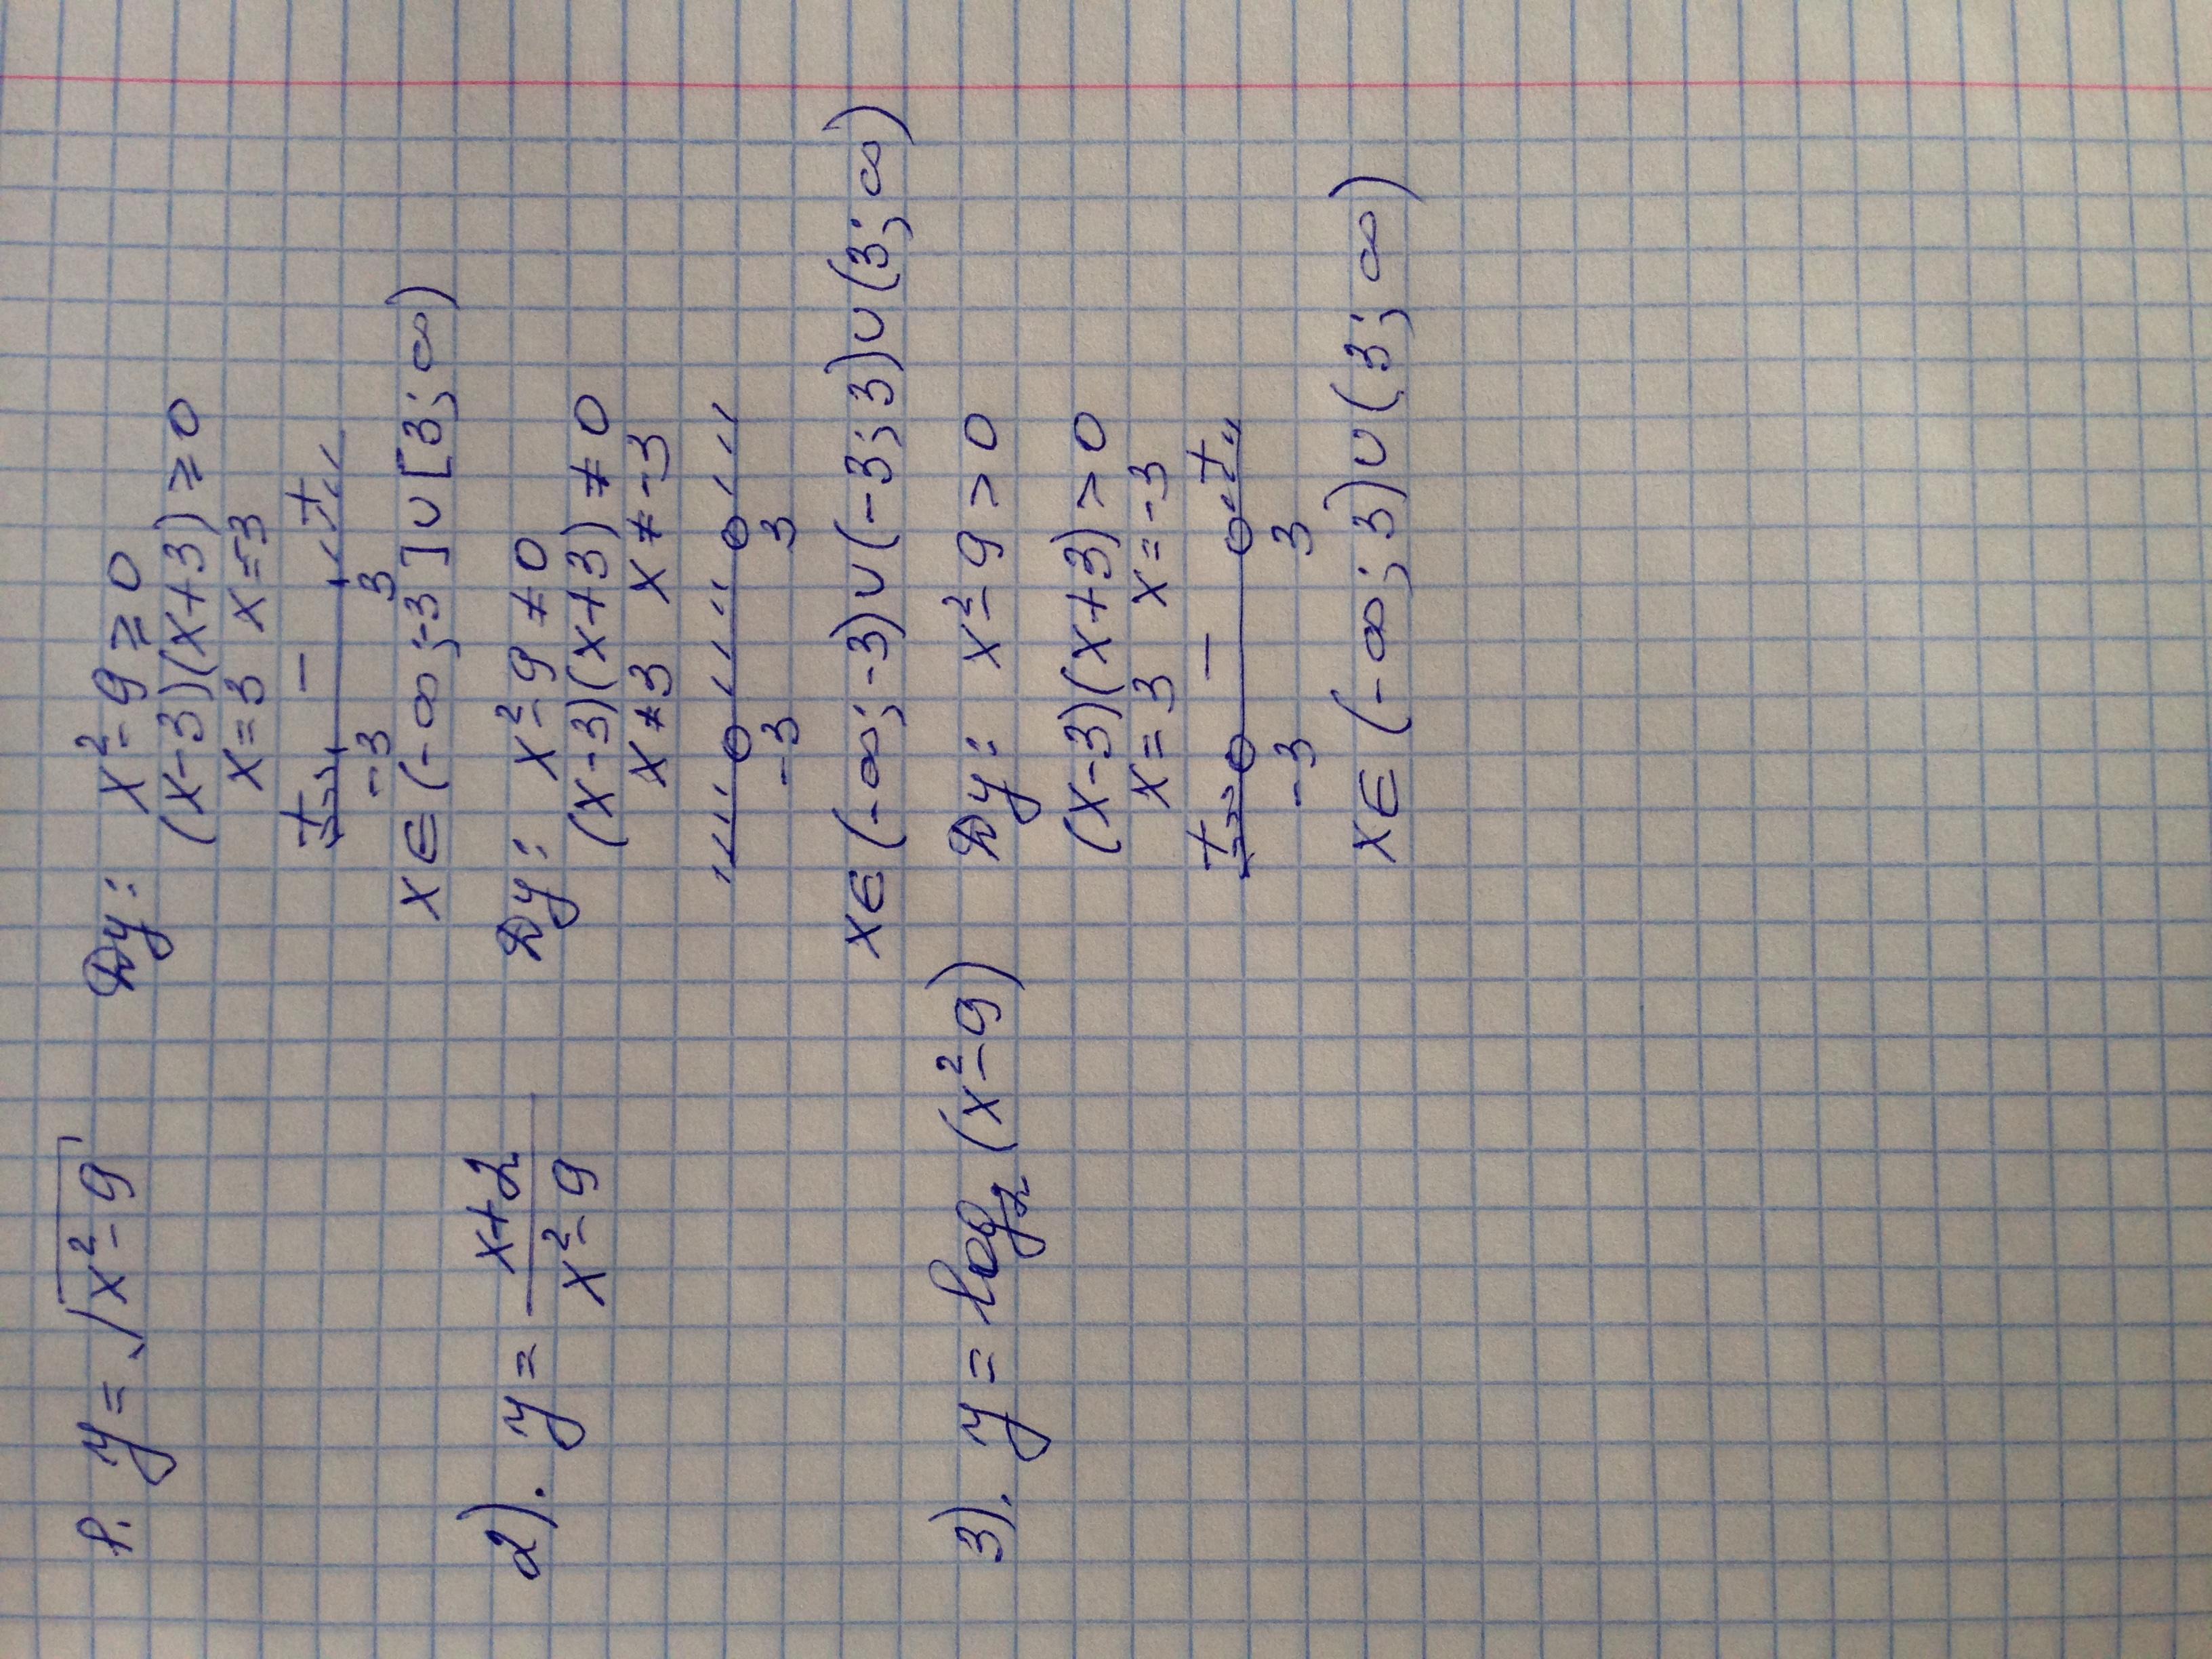 1. y = √(x² - 9) Dy: x² - 9 ≥ 0
(x - 3)(x + 3) ≥ 0
x = 3 x = -3
+ - +
-3 3
x ∈ (-∞; -3] ∪ [3; ∞)
2). y = (x + 2)/(x² - 9) Dy: x² - 9 ≠ 0
(x - 3)(x + 3) ≠ 0
x ≠ 3 x ≠ -3
-3 3
x ∈ (-∞; -3) ∪ (-3; 3) ∪ (3; ∞)
3). y = log₂ (x² - 9) Dy: x² - 9 > 0
(x - 3)(x + 3) > 0
x = 3 x = -3
+ - +
-3 3
x ∈ (-∞; 3) ∪ (3; ∞)